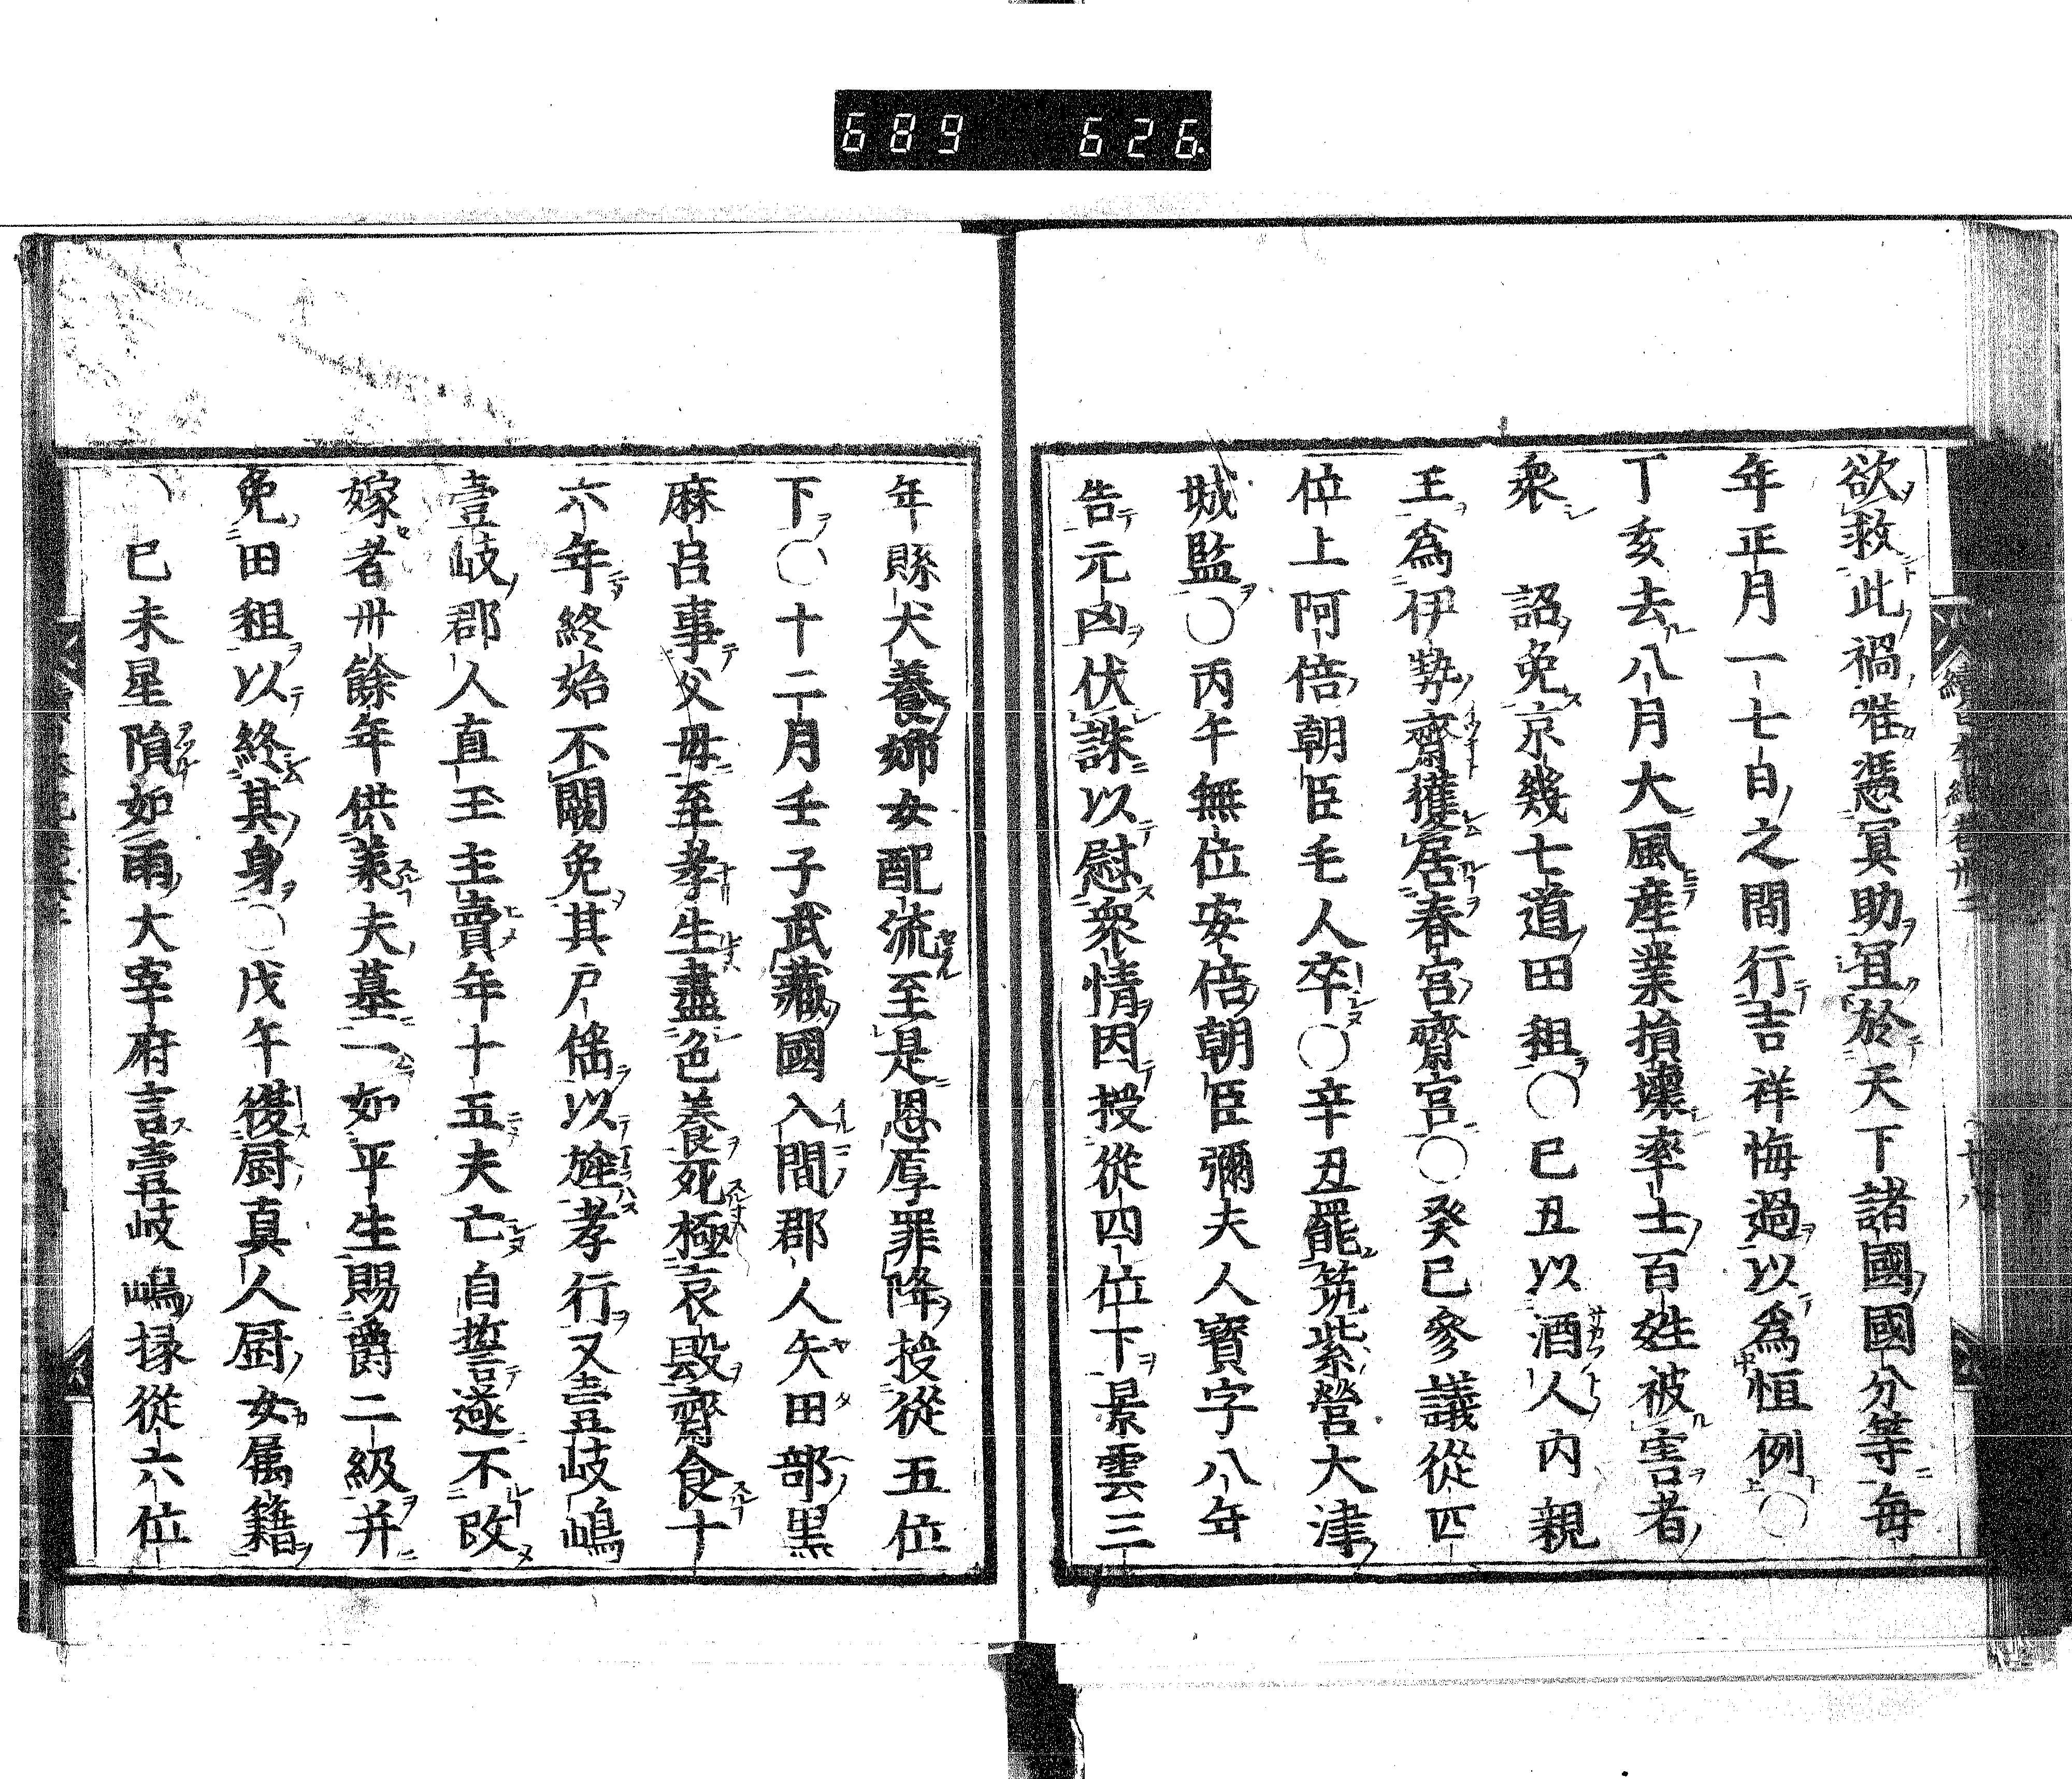 689 626
欲救此禍唯憑冥助且於天下諸國國分等毎
年正月一七日之間行吉祥悔過以為恒例〇
丁亥去八月大風産業損壞率土百姓被害者
衆 詔免京幾七道田租〇已丑以酒人内親
王為伊勢齋權居春宮齋宮〇癸已參議從四
位上阿倍朝臣毛人卒〇辛丑罷筑紫營大津
城監〇丙午無位安倍朝臣彌夫人寳字八年
告元凶伏誅以慰衆情因授從四位下景雲三
年縣犬養姉女配流至是恩厚罪降授從五位
下〇十二月壬子武藏國入間郡人矢田部黒
麻呂事父母至孝生盡色養死極哀毀齋食十
六年終始不闕免其戸徭以旌孝行又壹岐嶋
壹岐郡人直玉主賣年十五夫亡自誓遂不改
嫁者卅餘年供葬夫墓一如平生賜爵二級并
免田租以終其身〇戊午復厨真人厨女属籍
〇已未星隕如雨大宰府言壹岐嶋掾從六位